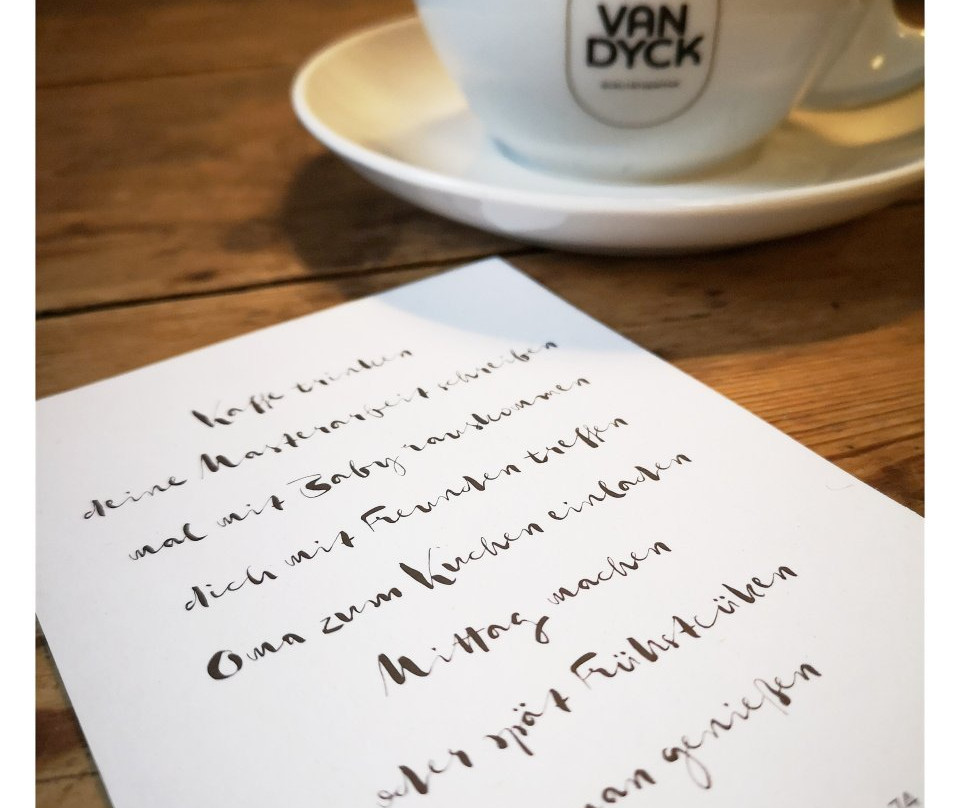 VAN
DYCK
Kaffe trinken
deine Masterarbeit schreiben
mal mit Baby rauskommen
dich mit Freunden treffen
Oma zum Kuchen einladen
Mittag machen
oder spät Frühstcüken
genießen